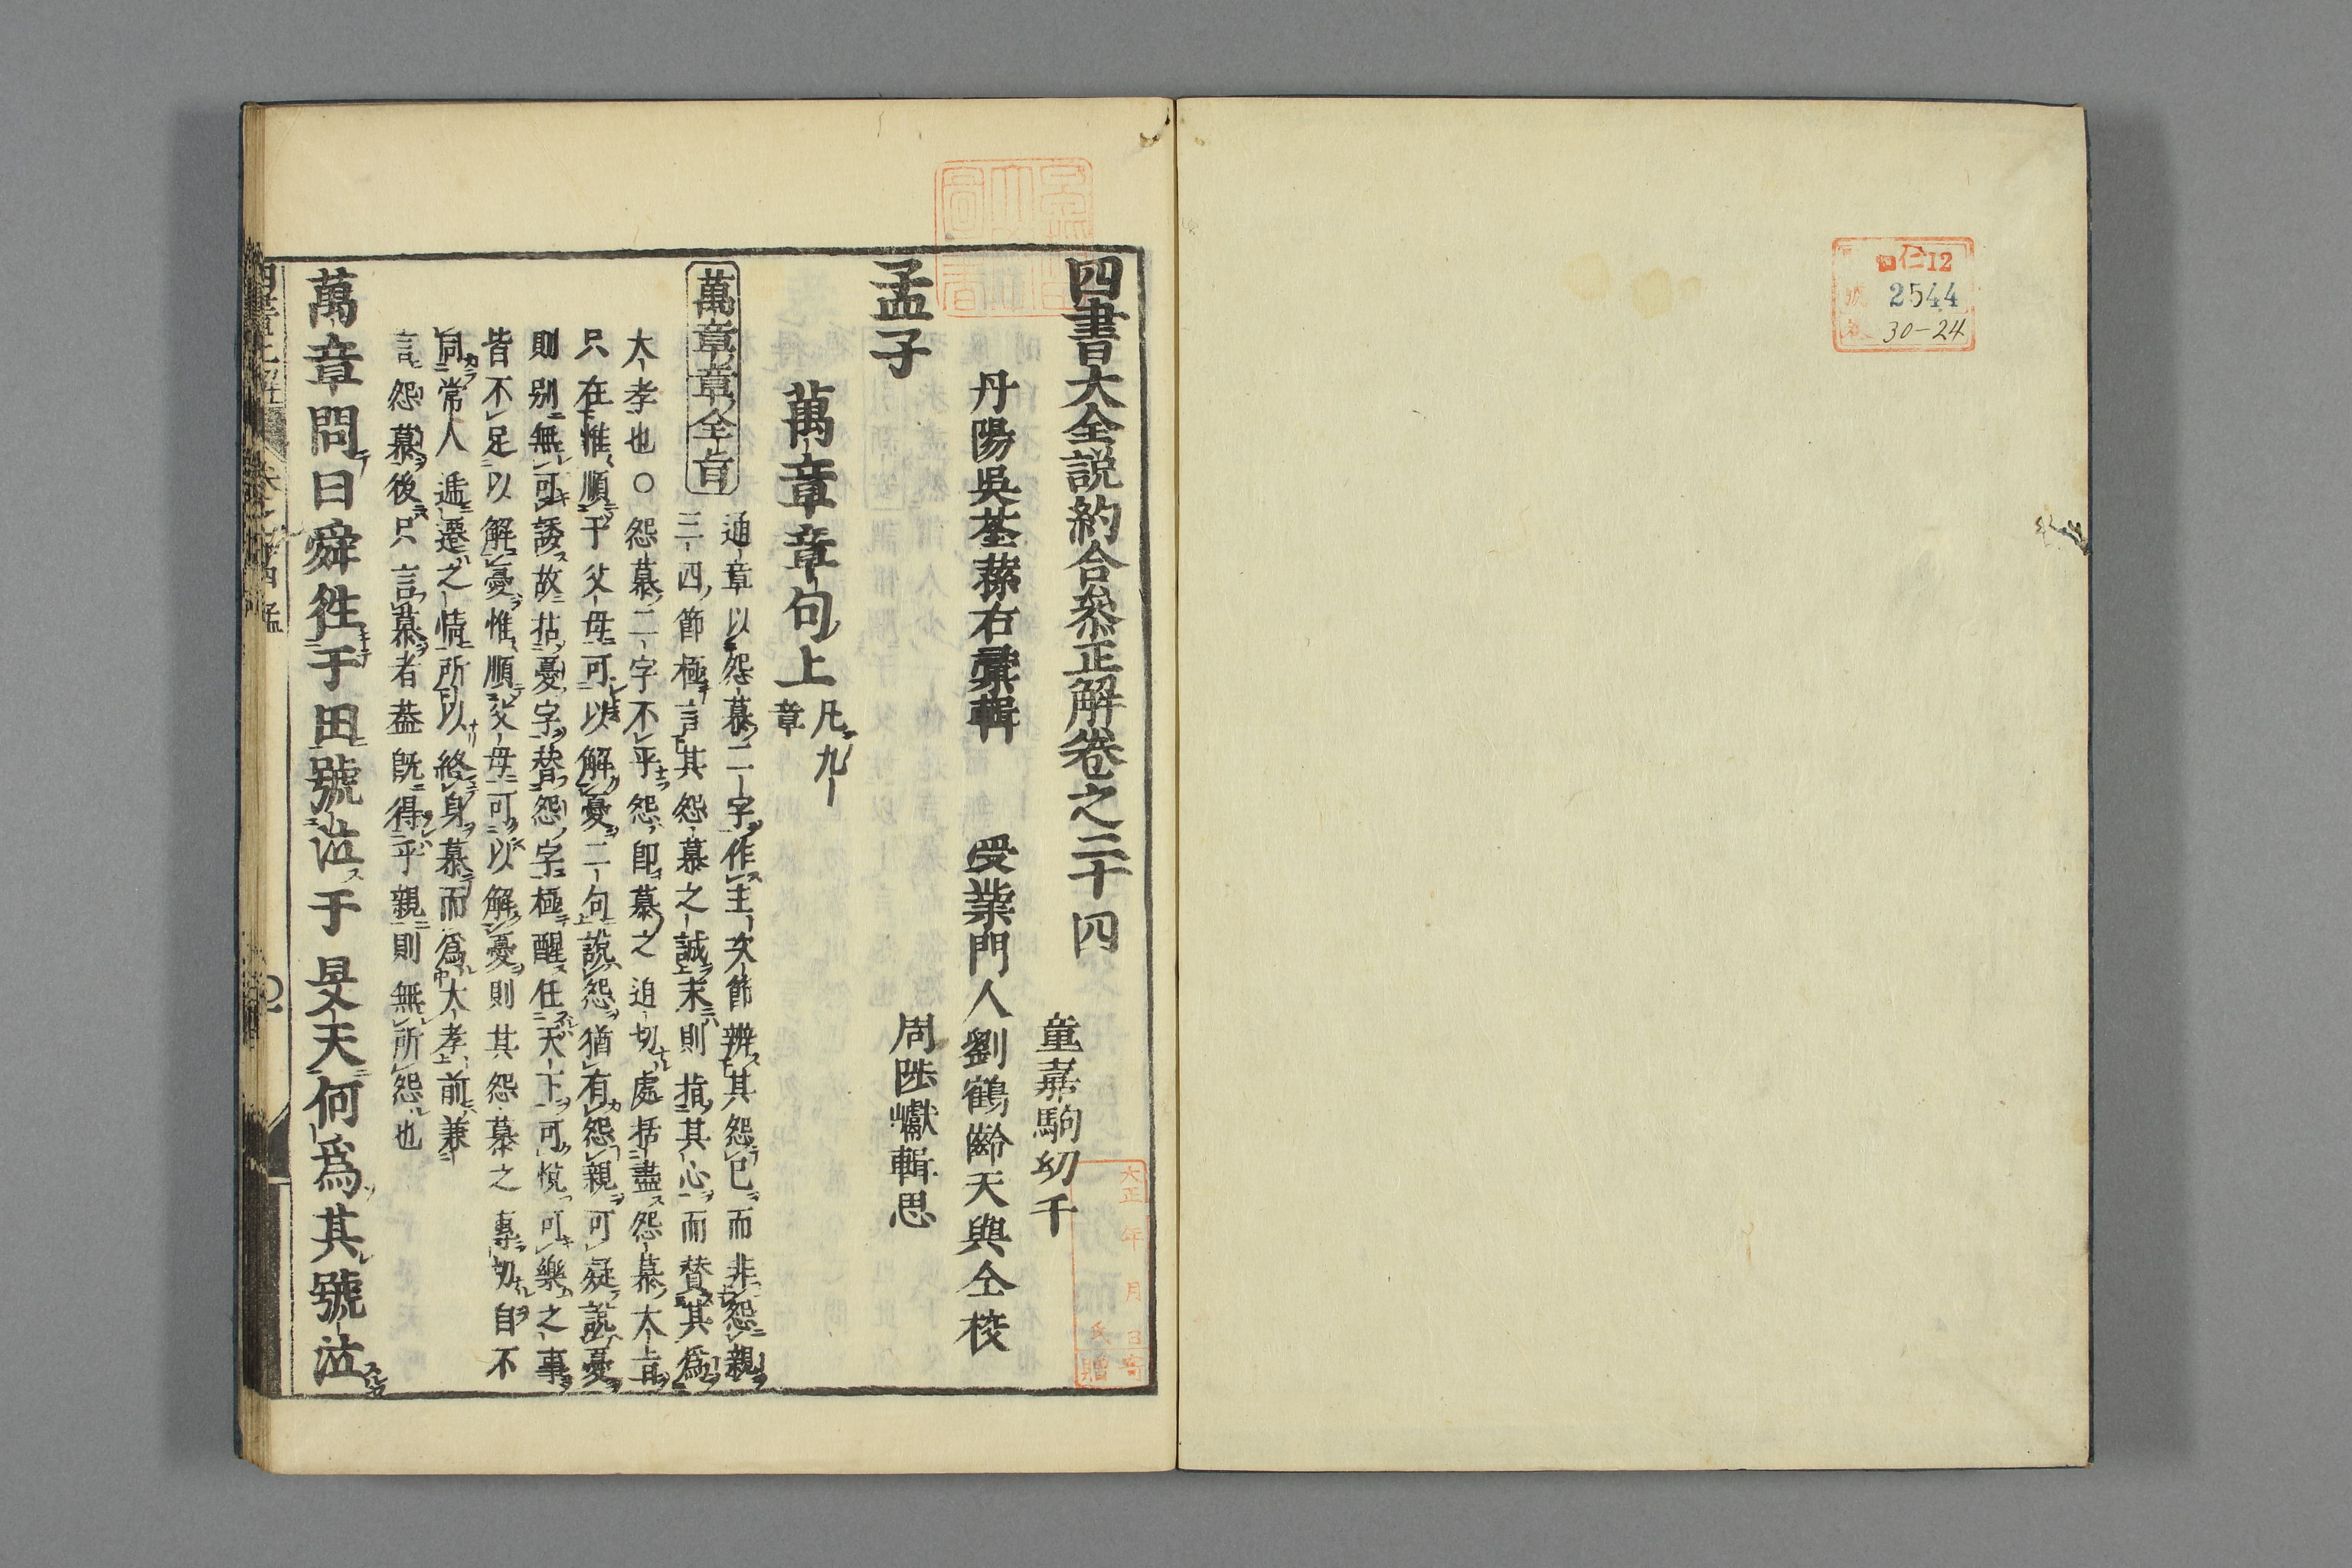 仁12
2544
30-24
四書大全説約合參正解卷之二十四
丹陽吳荃蓀右彙輯
童嘉駒幼千
受業門人劉鶴齡天與仝校
周陞巘輯思
孟子
萬章章句上
凡九章
萬章章全旨
通章以怨慕二字作主次節辨其怨已而非怨親
三四節極言其怨慕之誠末則指其心而贊其爲
大孝也○怨慕二字不平怨即慕之迫切處括盡怨慕大旨
只在惟順于父母可以解憂二句說怨猶有怨親可疑說憂
則别無可誘故拈憂字替怨字極醒任天下可悅可樂之事
皆不足以解憂惟順父母可以解憂則其怨慕之專切自不
同常人遞遷之情所以終身慕而爲大孝前兼
言怨慕後只言慕者葢既得乎親則無所怨也
萬章問曰舜徃于田號泣于旻天何爲其號泣
大正 年 月 日寄
氏 贈